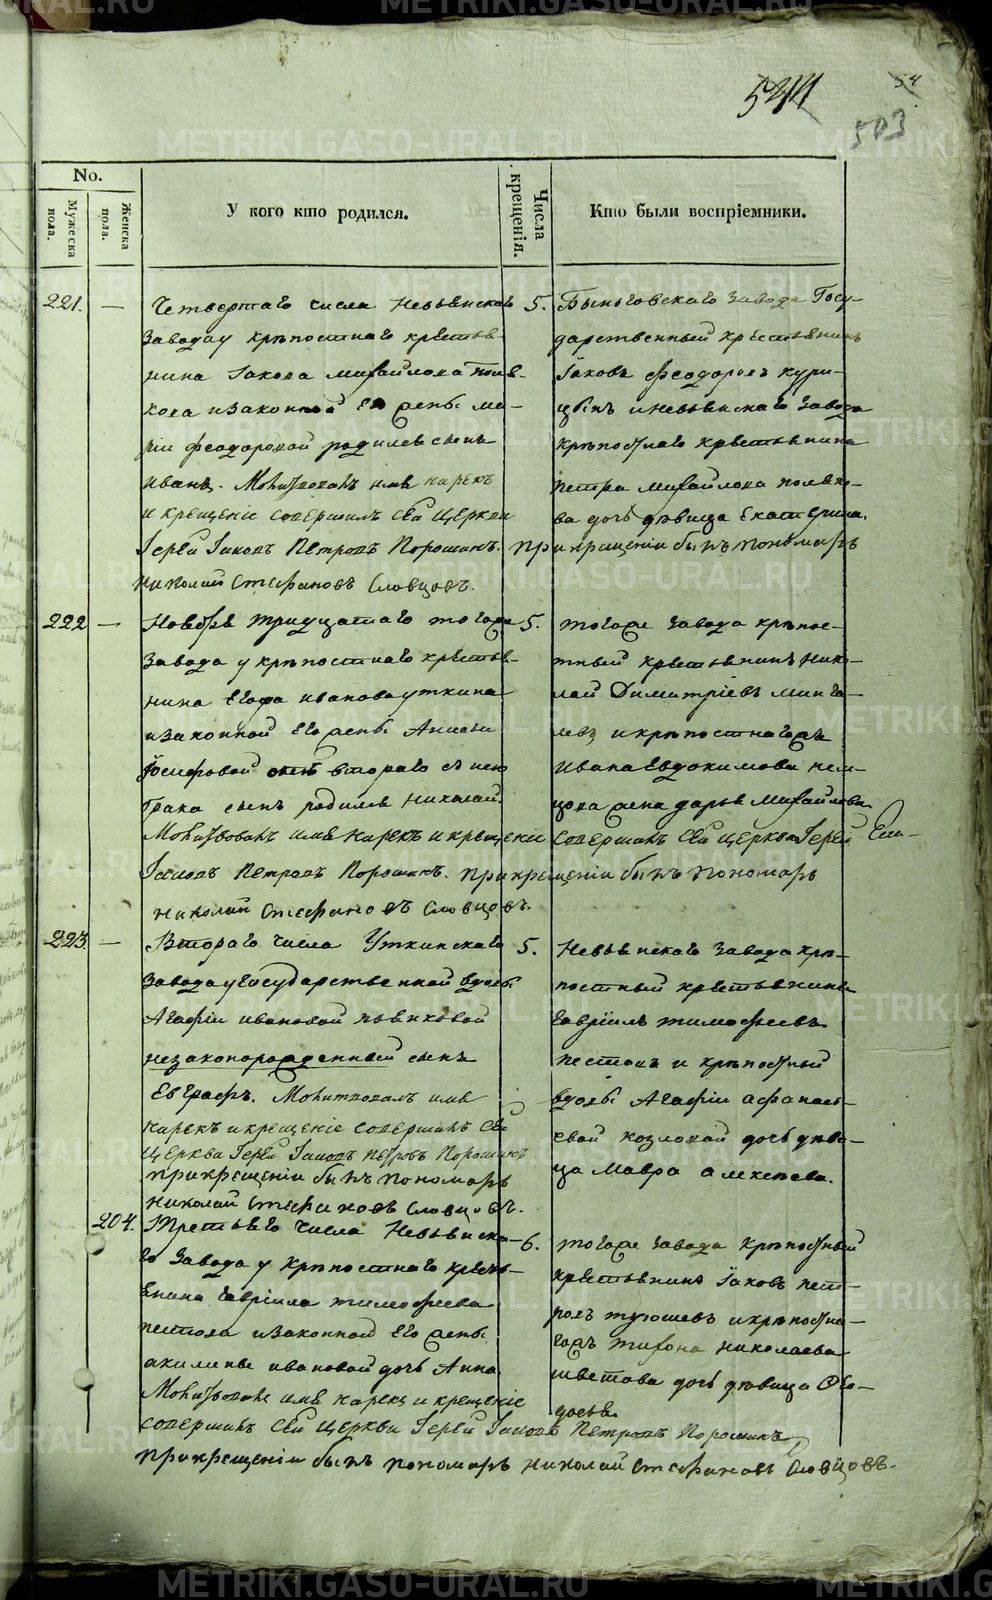 54
503
No.
Мужеска пола.
Женска пола.
У кого кто родился.
Числа крещенія.
Кто были воспріемники.
221. — Четвертаго числа Невьянскаго
завода у крѣпостнаго крестья-
нина Іакова Михайлова Поля-
кова и законной его жены Ма-
ріи Феодоровой родился сынъ
Иванъ. Молитвовалъ имя нарекъ
и крещеніе совершилъ сей церкви
Іерей Іаковъ Петровъ Порошинъ. При крещеніи былъ пономарь
Николай Стефановъ Словцовъ.
5. Быньговскаго завода Госу-
дарственный крестьянинъ
Іаковъ Феодоровъ Кури-
цынъ и Невьянскаго завода
крѣпостнаго крестьянина
Петра Михайлова Поляко-
ва дочь дѣвица Екатерина.
222 — Ноября тридцатаго тогоже
завода у крѣпостнаго крестья-
нина Егора Иванова Уткина
и законной его жены Анисьи
Іосифовой втораго съ нею
брака сынъ родился Николай.
Молитвовалъ имя нарекъ и крещеніе совершилъ сей церкви Іерей
Іаковъ Петровъ Порошинъ. При крещеніи былъ пономарь
Николай Стефановъ Словцовъ.
5. тогоже завода крѣпос-
тный крестьянинъ Нико-
лай Димитріевъ
и крѣпостнагожъ
Ивана Евдокимова
жена Дарья Михайлова
223. — Втораго числа Уткинскаго
завода у Государственной вдовы
Агафіи Ивановой
незаконорожденный сынъ
Евграфъ. Молитвовалъ имя
нарекъ и крещеніе совершилъ сей
церкви Іерей Іаковъ Петровъ Порошинъ
при крещеніи былъ пономарь
Николай Стефановъ Словцовъ.
5. Невьянскаго завода крѣ-
постный крестьянинъ
Гавріилъ Тимофеевъ
Пестовъ и крѣпостной
вдовы Агафіи Афанась-
евой Козловой дочь дѣви-
ца Мавра Алексѣева.
204. Третьяго числа Невьянска-
го завода у крѣпостнаго кресть-
янина Гавріила Тимофеева
Пестова и законной его жены
Акилины Ивановой дочь Анна.
Молитвовалъ имя нарекъ и крещеніе
совершилъ сей церкви Іерей Іаковъ Петровъ Порошинъ,
при крещеніи былъ пономарь Николай Стефановъ Словцовъ.
6. тогоже завода крѣпостный
крестьянинъ Іаковъ Пет-
ровъ и крѣпостна-
гожъ Тихона Николаева
Шветова дочь дѣвица Фео-
досья.
METRIKI.GASO-URAL.RU